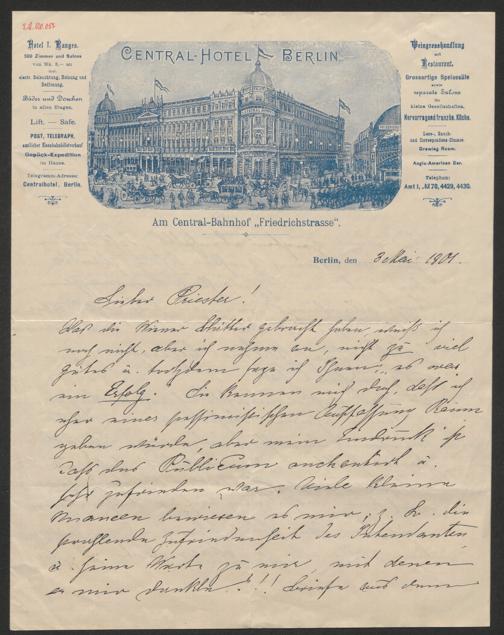 Hotel I. Ranges.
500 Zimmer und Salons
von Mk. 3.– an
incl.
electr. Beleuchtung, Heizung und
Bedienung.
Bäder und Douchen
in allen Etagen.
Lift. — Safe.
POST, TELEGRAPH,
amtlicher Eisenbahnbilletverkauf
Gepäck-Expedition
im Hause.
Telegramm-Adresse:
Centralhotel, Berlin.
CENTRAL-HOTEL BERLIN
Weingrosshandlung
mit
Restaurant.
Grossartige Speisesäle
sowie
separate Salons
für
kleine Gesellschaften.
Hervorragend französ. Küche.
Lese-, Rauch-
und Correspondenz-Zimmer
Drawing Room.
Anglo-American Bar.
Telephon:
Amt I, № 70, 4429, 4430.
Am Central-Bahnhof „Friedrichstrasse“.
Berlin, den 3 Mai 1901.
Lieber Priester!
Was die Wiener Blätter gebracht haben weiß ich
noch nicht, aber ich nehme an, nicht zu viel
Gutes u. trotzdem sage ich Ihnen, es war
ein Erfolg. Sie kennen mich doch, daß ich
eher einer pessimistischen Auffassung Raum
geben würde, aber mein Eindruck ist
daß das Publicum enchantirt u.
sehr zufrieden war. Viele kleine
Nuancen beweisen es mir, z. B. die
strahlende Zufriedenheit des Intendanten
u. seine Worte zu mir, mit denen
er mir dankte!!! Briefe aus dem